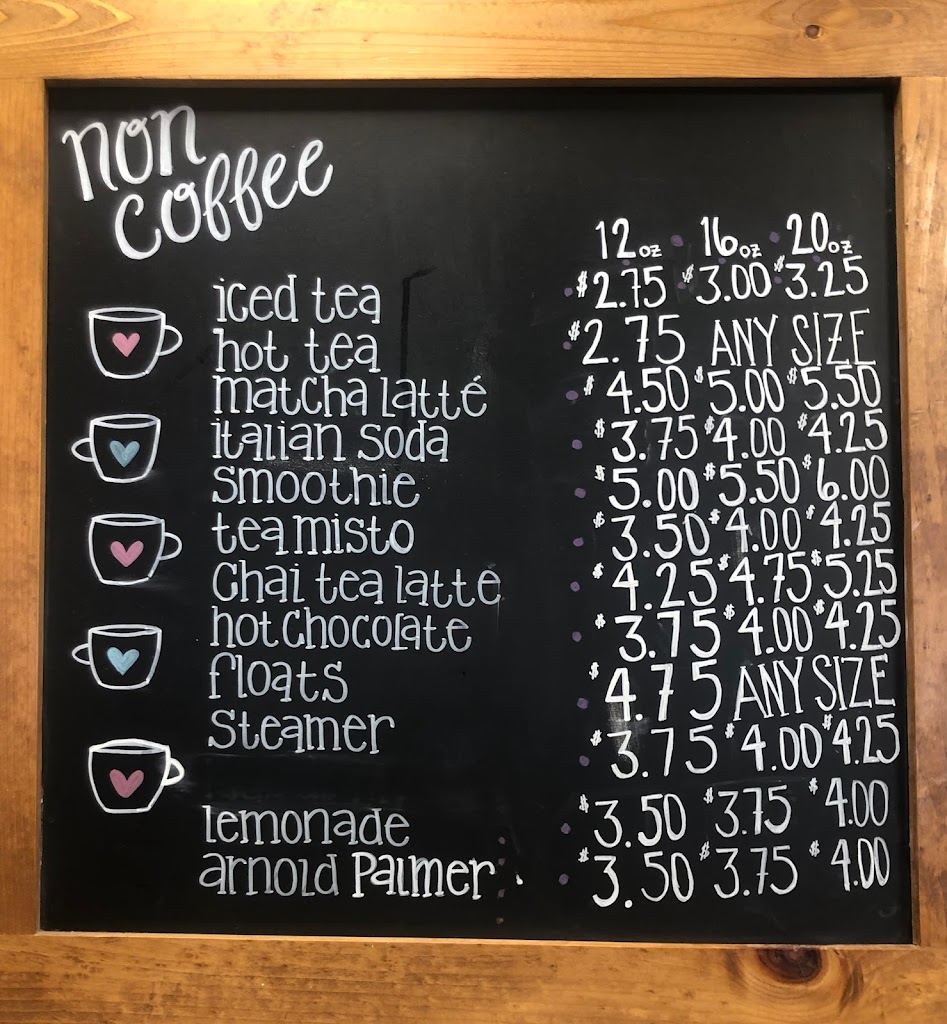 non
coffee
12oz 16oz 20oz
iced tea $2.75 $3.00 $3.25
hot tea $2.75 ANY SIZE
matcha latté $4.50 $5.00 $5.50
italian soda $3.75 $4.00 $4.25
smoothie $5.00 $5.50 $6.00
tea misto $3.50 $4.00 $4.25
Chai tea latté $4.25 $4.75 $5.25
hot chocolate $3.75 $4.00 $4.25
floats $4.75 ANY SIZE
Steamer $3.75 $4.00 $4.25
lemonade $3.50 $3.75 $4.00
arnold Palmer $3.50 $3.75 $4.00